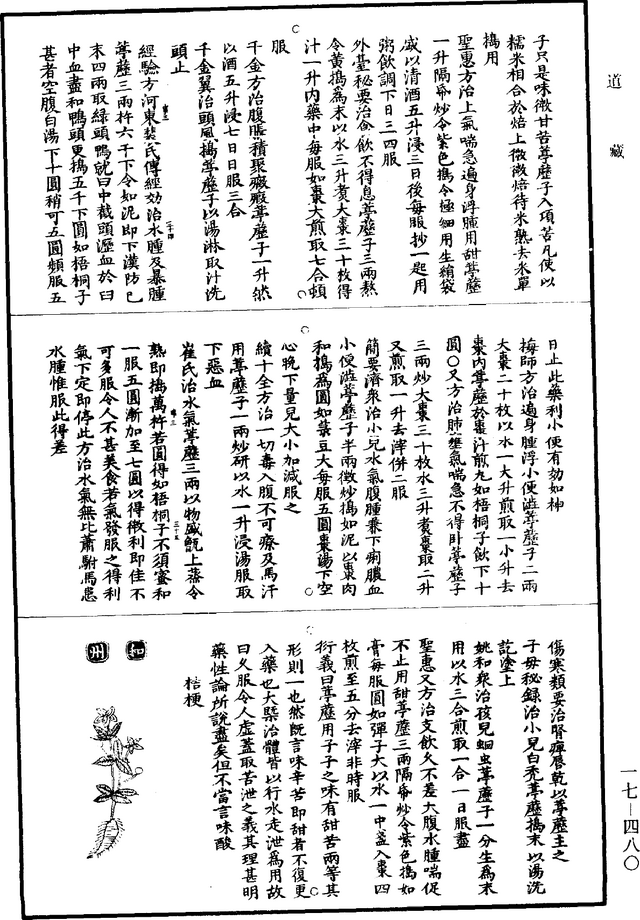 道藏
子只是味微甘苦葶藶子入項苦凡使以
糯米相合於焙上微微焙待米熟去米單
擣用
聖惠方治上氣喘急遍身浮腫用甜葶藶
一升隔帋炒令紫色擣令極細用生絹袋
盛以清酒五升浸三日後每服抄一匙用
粥飲調下日三四服
外臺秘要治食飲不得息葶藶子三兩熬
令黃擣為末以水三升煮大棗三十枚得
汁一升內藥中每服如棗大煎取七合頓
服
千金方治腹脹積聚癥瘕葶藶子一升熬
以酒五升浸七日日服三合
千金翼治頭風擣葶藶子以湯淋取汁洗
頭止
經驗方河東裴氏傳經効治水腫及暴腫
葶藶三兩杵六千下令如泥即下漢防已
末四兩取綠頭鴨就臼中截頭瀝血於臼
中血盡和鴨頭更擣五千下圓如梧桐子
甚者空腹白湯下十圓稍可五圓頻服五
日止此藥利小便有効如神
梅師方治遍身腫浮小便澁葶藶子二兩
大棗二十枚以水一大升煎取一小升去
棗內葶藶於棗汁煎丸如梧桐子飲下十
圓○又方治肺壅氣喘急不得卧葶藶子
三兩炒大棗三十枚水三升煮棗取二升
又煎取一升去滓併二服
簡要濟衆治小兒水氣腹腫兼下痢膿血
小便澁葶藶子半兩微炒擣如泥以棗肉
和擣為圓如菉豆大每服五圓棗湯下空
心晚下量兒大小加減服之
續十全方治一切毒入腹不可療及馬汗
用葶藶子一兩炒研以水一升浸湯服取
下惡血
崔氏治水氣葶藶三兩以物盛甑上蒸令
熟即擣萬杵若圓得如梧桐子不須蜜和
一服五圓漸加至七圓以得微利即佳不
可多服令人不甚美食若氣發服之得利
氣下定即停此方治水氣無比蕭駙馬患
水腫惟服此得差
傷寒類要治腎癉唇乾以葶藶主之
子母秘錄治小兒白禿葶藶擣末以湯洗
訖塗上
姚和衆治孩兒蛔虫葶藶子一分生為末
用以水三合煎取一合一日服盡
聖惠又方治支飲久不差大腹水腫喘促
不止用甜葶藶三兩隔帋炒令紫色擣如
膏每服圓如彈子大以水一中盞入棗四
枚煎至五分去滓非時服
衍義曰葶藶用子子之味有甜苦兩等其
形則一也然既言味辛苦即甜者不復更
入藥也大槩治體皆以行水走泄為用故
曰久服令人虛蓋取苦泄之義其理甚明
藥性論所說盡矣但不當言味酸
桔梗
和州
一七—四八〇